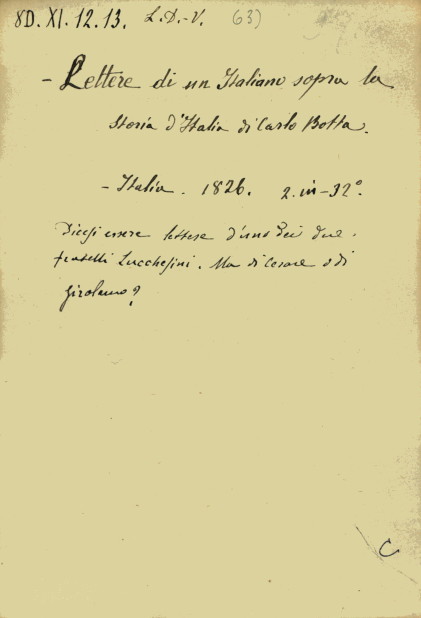 8D. XI. 12. 13. L.D.-V. (63)
- Lettere di un Italiano sopra la
Storia d'Italia di Carlo Botta.
- Italia. 1826. 2. in-32º.
Dicesi essere lettere d'uno dei due
fratelli Lucchesini. Ma di Cesare o di
Girolamo?
C